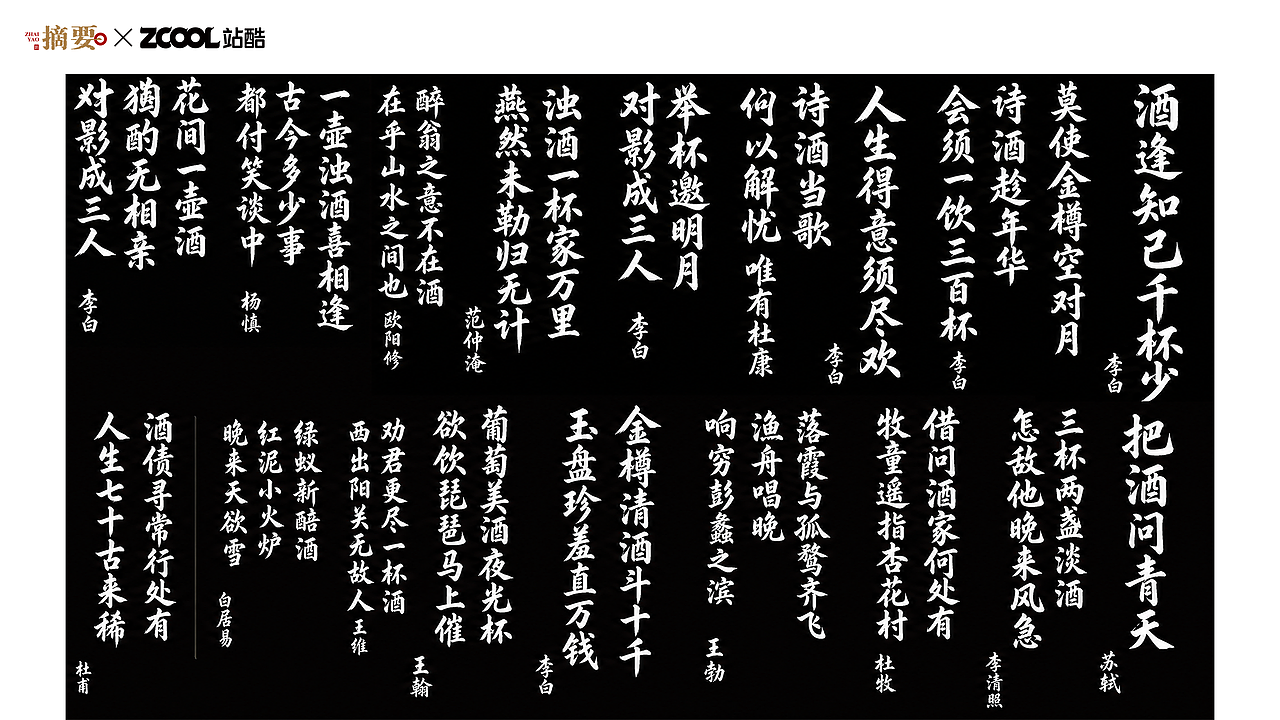 ZHAI YAO 摘要 × ZCOOL 站酷
酒逢知已千杯少
莫使金樽空对月
李白
诗酒趁年华
会须一饮三百杯
李白
人生得意须尽欢
李白
诗酒当歌
何以解忧 唯有杜康
举杯邀明月
对影成三人
李白
浊酒一杯家万里
燕然未勒归无计
范仲淹
醉翁之意不在酒
在乎山水之间也
欧阳修
一壶浊酒喜相逢
古今多少事
都付笑谈中
杨慎
花间一壶酒
独酌无相亲
对影成三人
李白
把酒问青天
苏轼
三杯两盏淡酒
怎敌他晚来风急
李清照
借问酒家何处有
牧童遥指杏花村
杜牧
落霞与孤鹜齐飞
渔舟唱晚
响穷彭蠡之滨
王勃
金樽清酒斗十千
玉盘珍羞直万钱
李白
葡萄美酒夜光杯
欲饮琵琶马上催
王翰
劝君更尽一杯酒
西出阳关无故人
王维
绿蚁新醅酒
红泥小火炉
晚来天欲雪
白居易
酒债寻常行处有
人生七十古来稀
杜甫